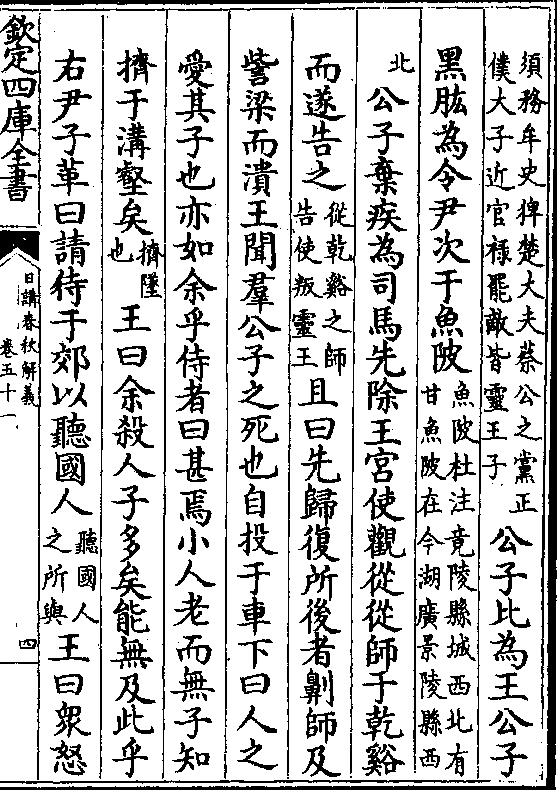 須務牟史猈楚大夫蔡公之黨正
僕大子近官祿罷敵皆靈王子
公子比為王公子
黑肱為令尹次于魚陂
魚陂杜注竟陵縣城西北有
甘魚陂在今湖廣景陵縣西
北
公子棄疾為司馬先除王宮使觀從從師于乾谿
而遂告之
從乾谿之師
告使叛靈王
且曰先歸復所後者劓師及
訾梁而潰王聞羣公子之死也自投于車下曰人之
愛其子也亦如余乎侍者曰甚焉小人老而無子知
擠于溝壑矣
擠墜
也
王曰余殺人子多矣能無及此乎
右尹子革曰請待于郊以聽國人
聽國人
之所與
王曰衆怒
欽定四庫全書
日講春秋解義
卷五十一
四